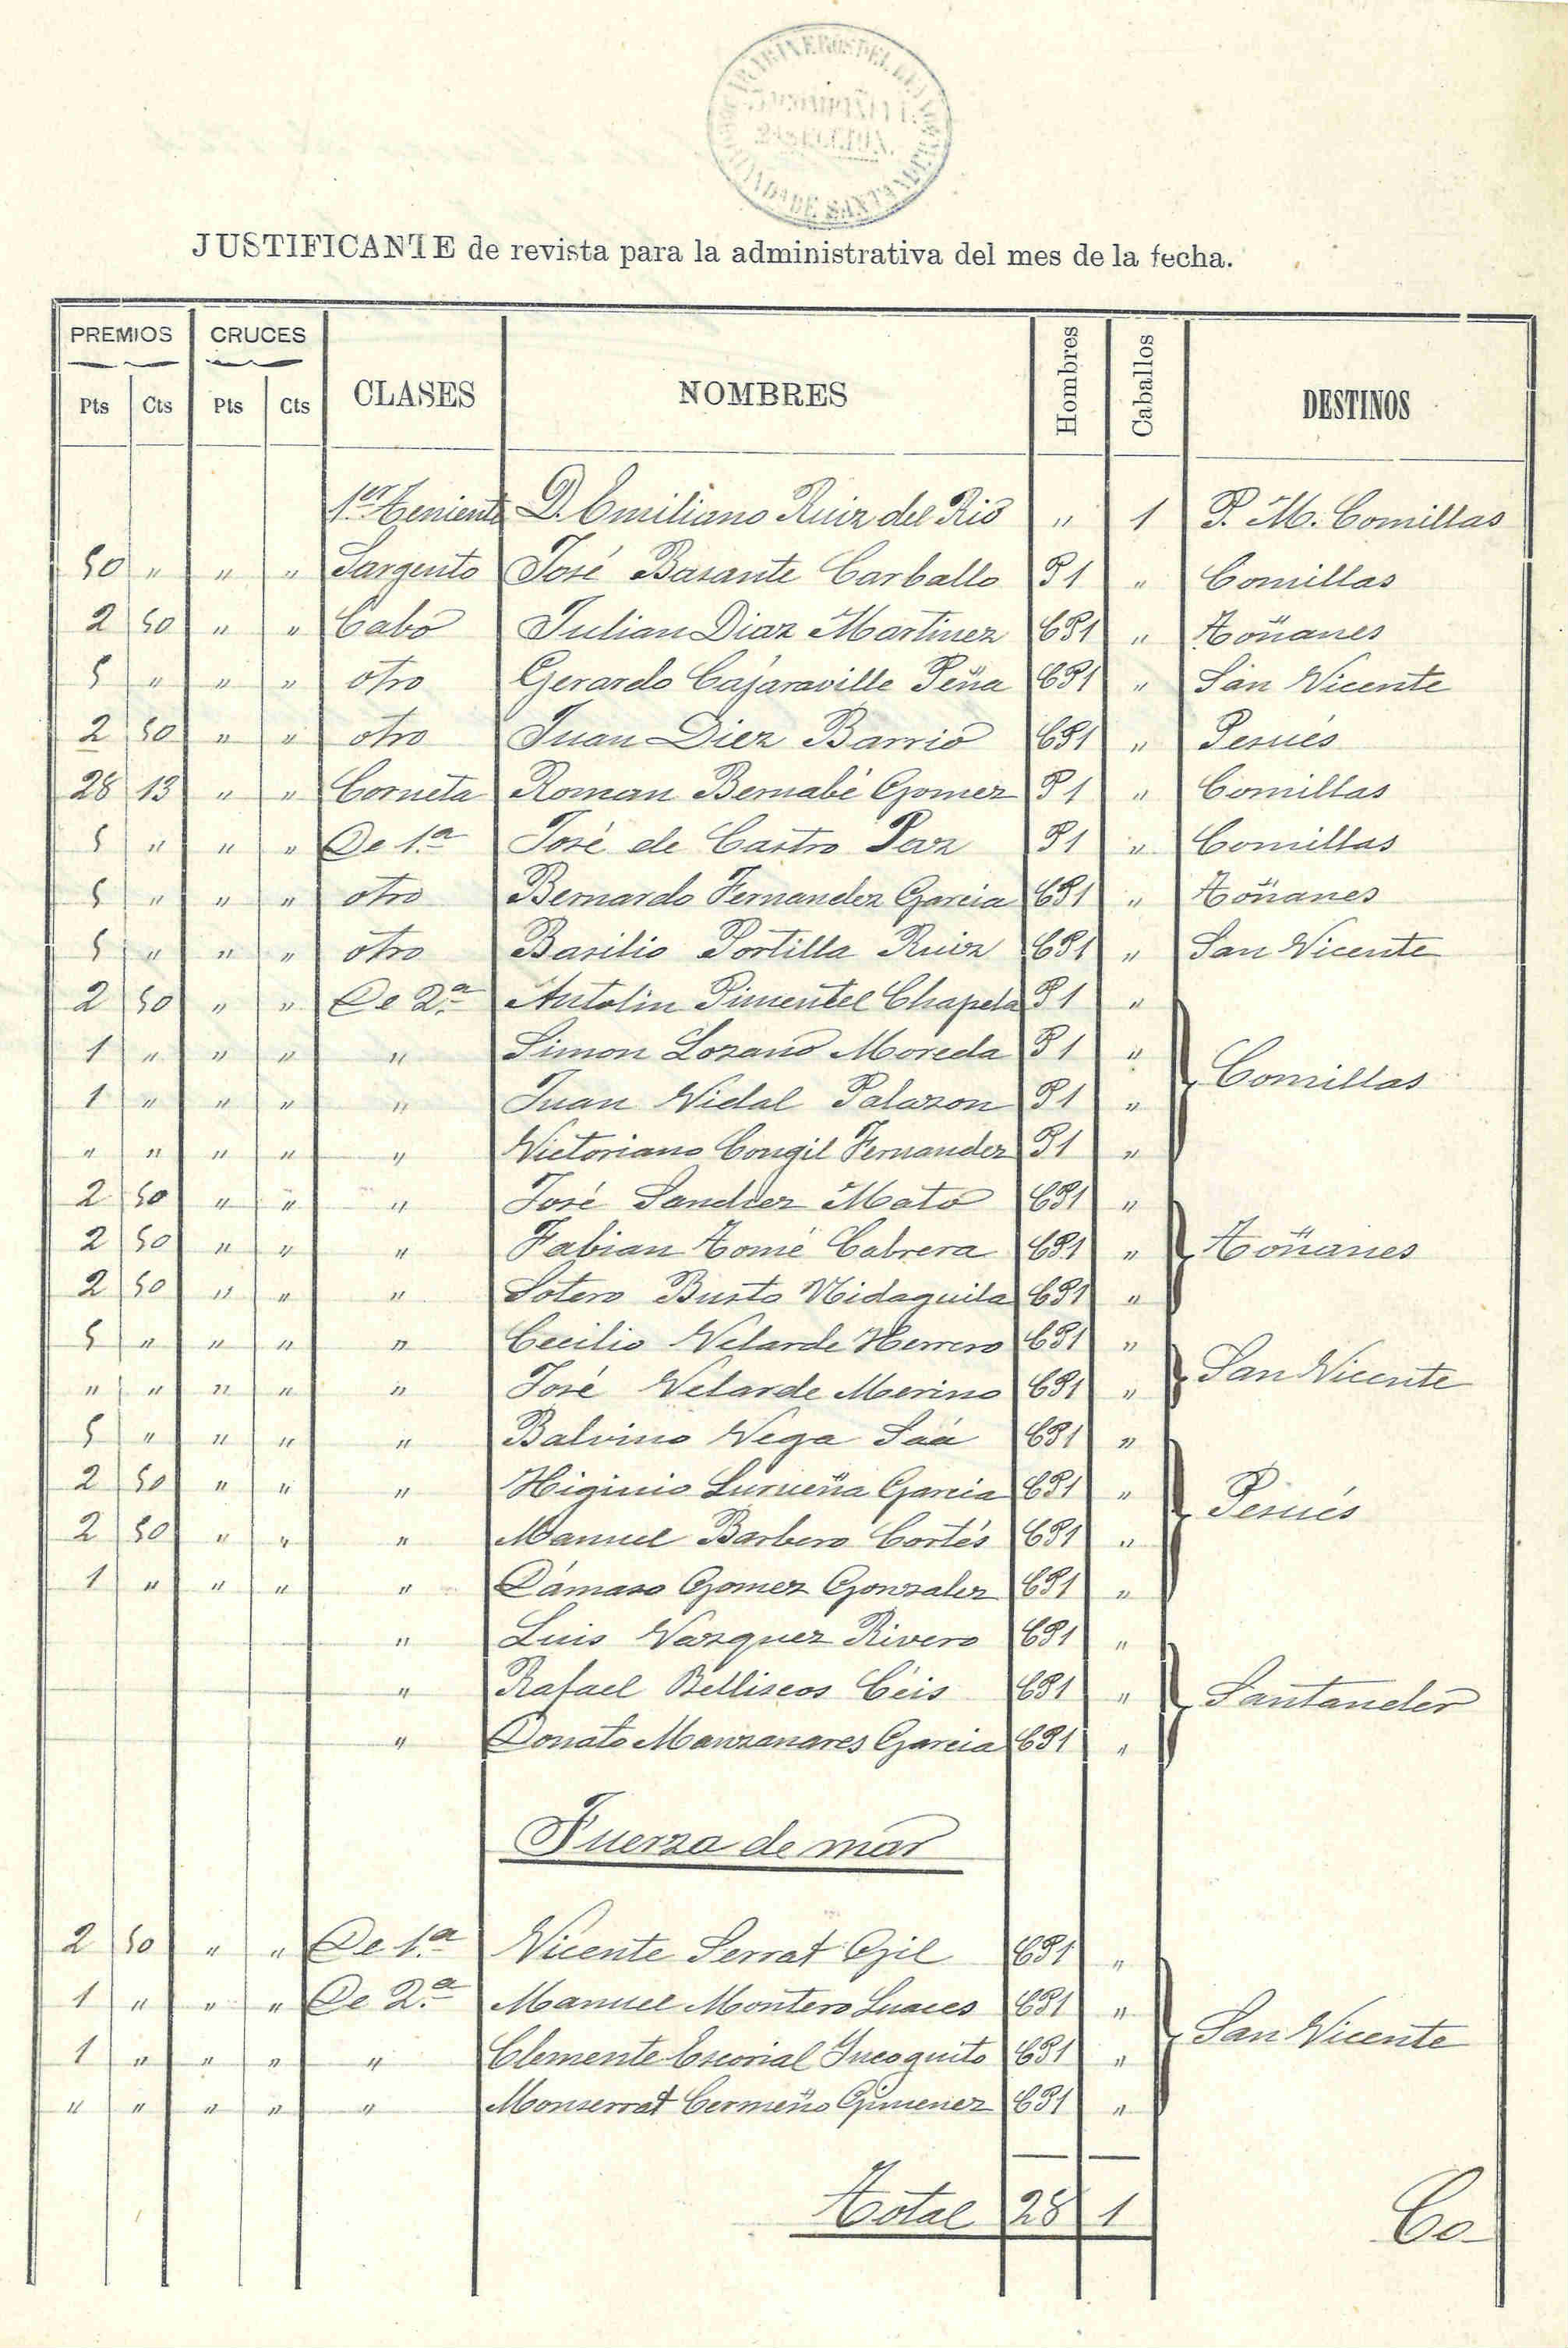 CARABINEROS DEL REINO
COMPAÑIA
2ª SECCION.
COMANDANCIA DE SANTANDER
JUSTIFICANTE de revista para la administrativa del mes de la fecha.
PREMIOS CRUCES CLASES NOMBRES Hombres Caballos DESTINOS
Pts Cts Pts Cts
1.er Teniente D. Emiliano Ruiz del Rio " 1 P. M. Comillas
50 " " " Sargento José Basante Carballo P1 " Comillas
2 50 " " Cabo Julian Diaz Martinez CP1 " Toñanes
5 " " " otro Gerardo Cajaraville Peña CP1 " San Vicente
2 50 " " otro Juan Diez Barrio CP1 " Pesués
28 13 " " Corneta Roman Bernabé Gomez P1 " Comillas
5 " " " De 1.a José de Castro Paz P1 " Comillas
5 " " " otro Bernardo Fernandez Garcia CP1 " Toñanes
5 " " " otro Basilio Portilla Ruiz CP1 " San Vicente
2 50 " " De 2.a Antolin Pimentel Chapela P1 "
1 " " " " Simon Lozano Moreda P1 "
Comillas
1 " " " " Juan Vidal Palazon P1 "
" " " " " Victoriano Congil Fernandez P1 "
2 50 " " " José Sanchez Mato CP1 "
2 50 " " " Fabian Tomé Cabrera CP1 " Toñanes
2 50 " " " Sotero Busto CP1 "
5 " " " " Cecilio Velarde Herrero CP1 "
San Vicente
" " " " " José Velarde Merino CP1 "
5 " " " " Balvino Vega Saá CP1 "
2 50 " " " Higinio Lurueña Garcia CP1 "
Pesués
2 50 " " " Manuel Barbero Cortés CP1 "
1 " " " " Dámaso Gomez Gonzalez CP1 "
" Luis Vazquez Rivero CP1 "
" Rafael Belliscos Céis CP1 " Santander
" Donato Manzanares Garcia CP1 "
Fuerza de mar
2 50 " " De 1.a Vicente Serrat Gil CP1 "
1 " " " De 2.a Manuel Montero Luaces CP1 "
San Vicente
1 " " " " Clemente Escorial Incognito CP1 "
" " " " " Monserrat Cermeño Gimenez CP1 "
Total 28 1
Co